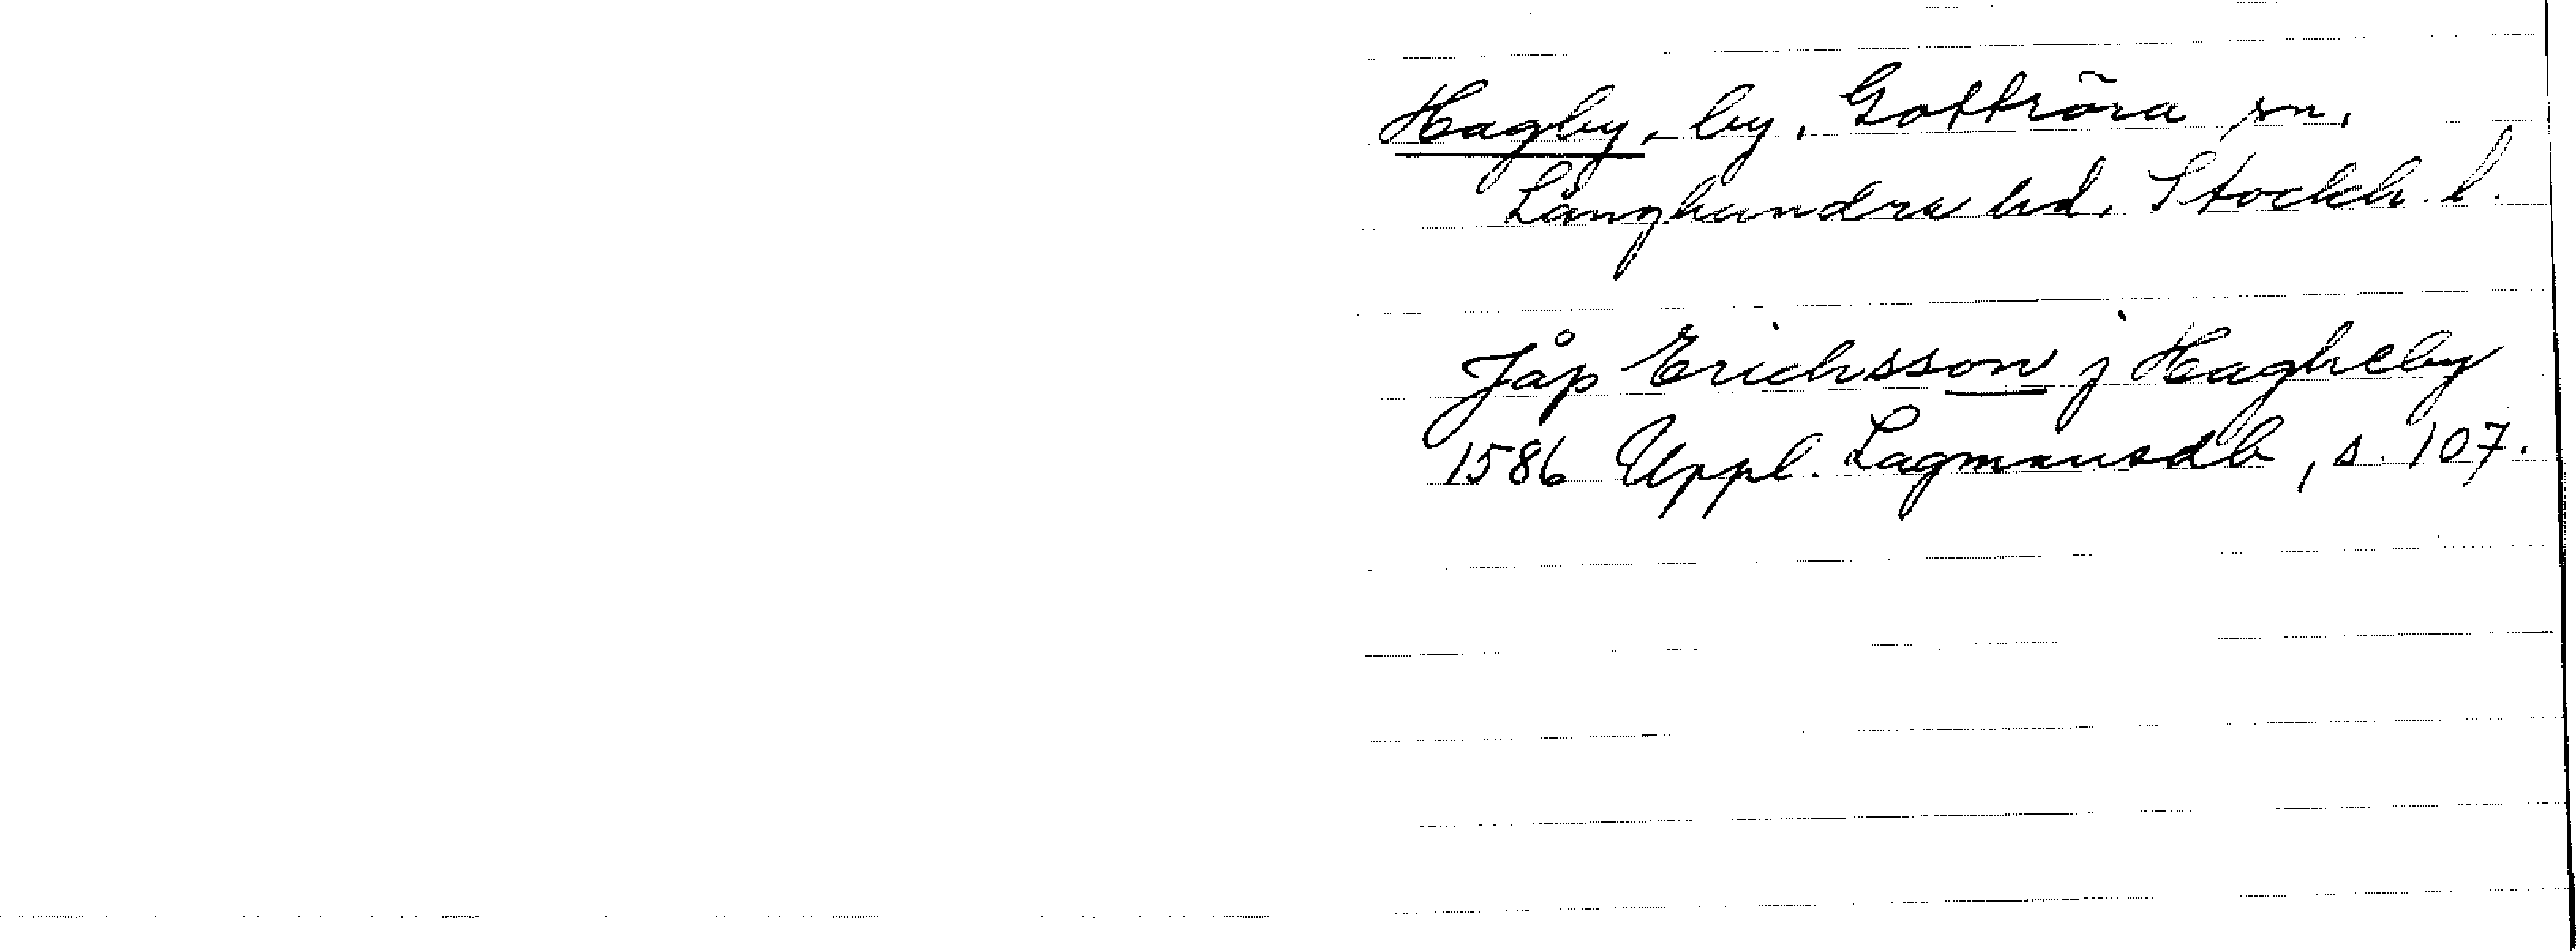 Hagby, by, Gottröra sn,
Långhundra hd, Stockh. l.
Jåp Erichsson j Hagheby
1586 Uppl. Lagmansdb, s. 107.